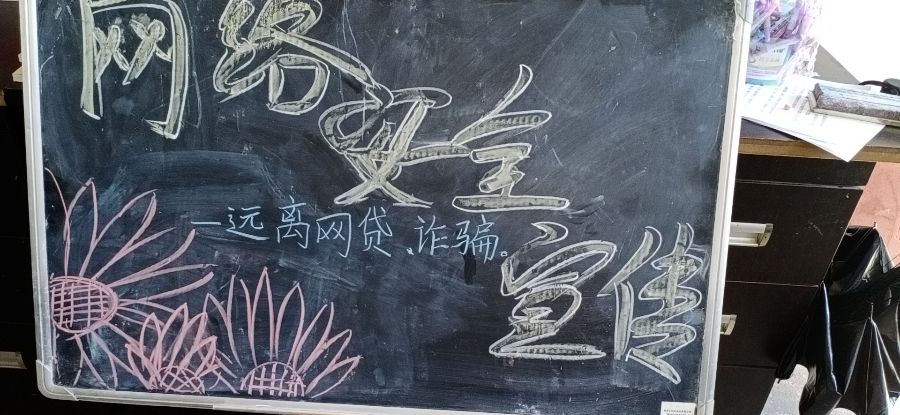 网络
安全
—远离网贷、诈骗。
宣传